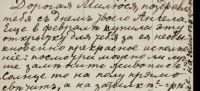 Дорогая Милюся, поздравл
тебя с днем твоего Ангела
Еще в феврале купила эту
открытку для тебя за ея необы
кновенно прекрасное исполне
ние: посмотри можно ли луч
ше
солнце то на полу прямо
а на